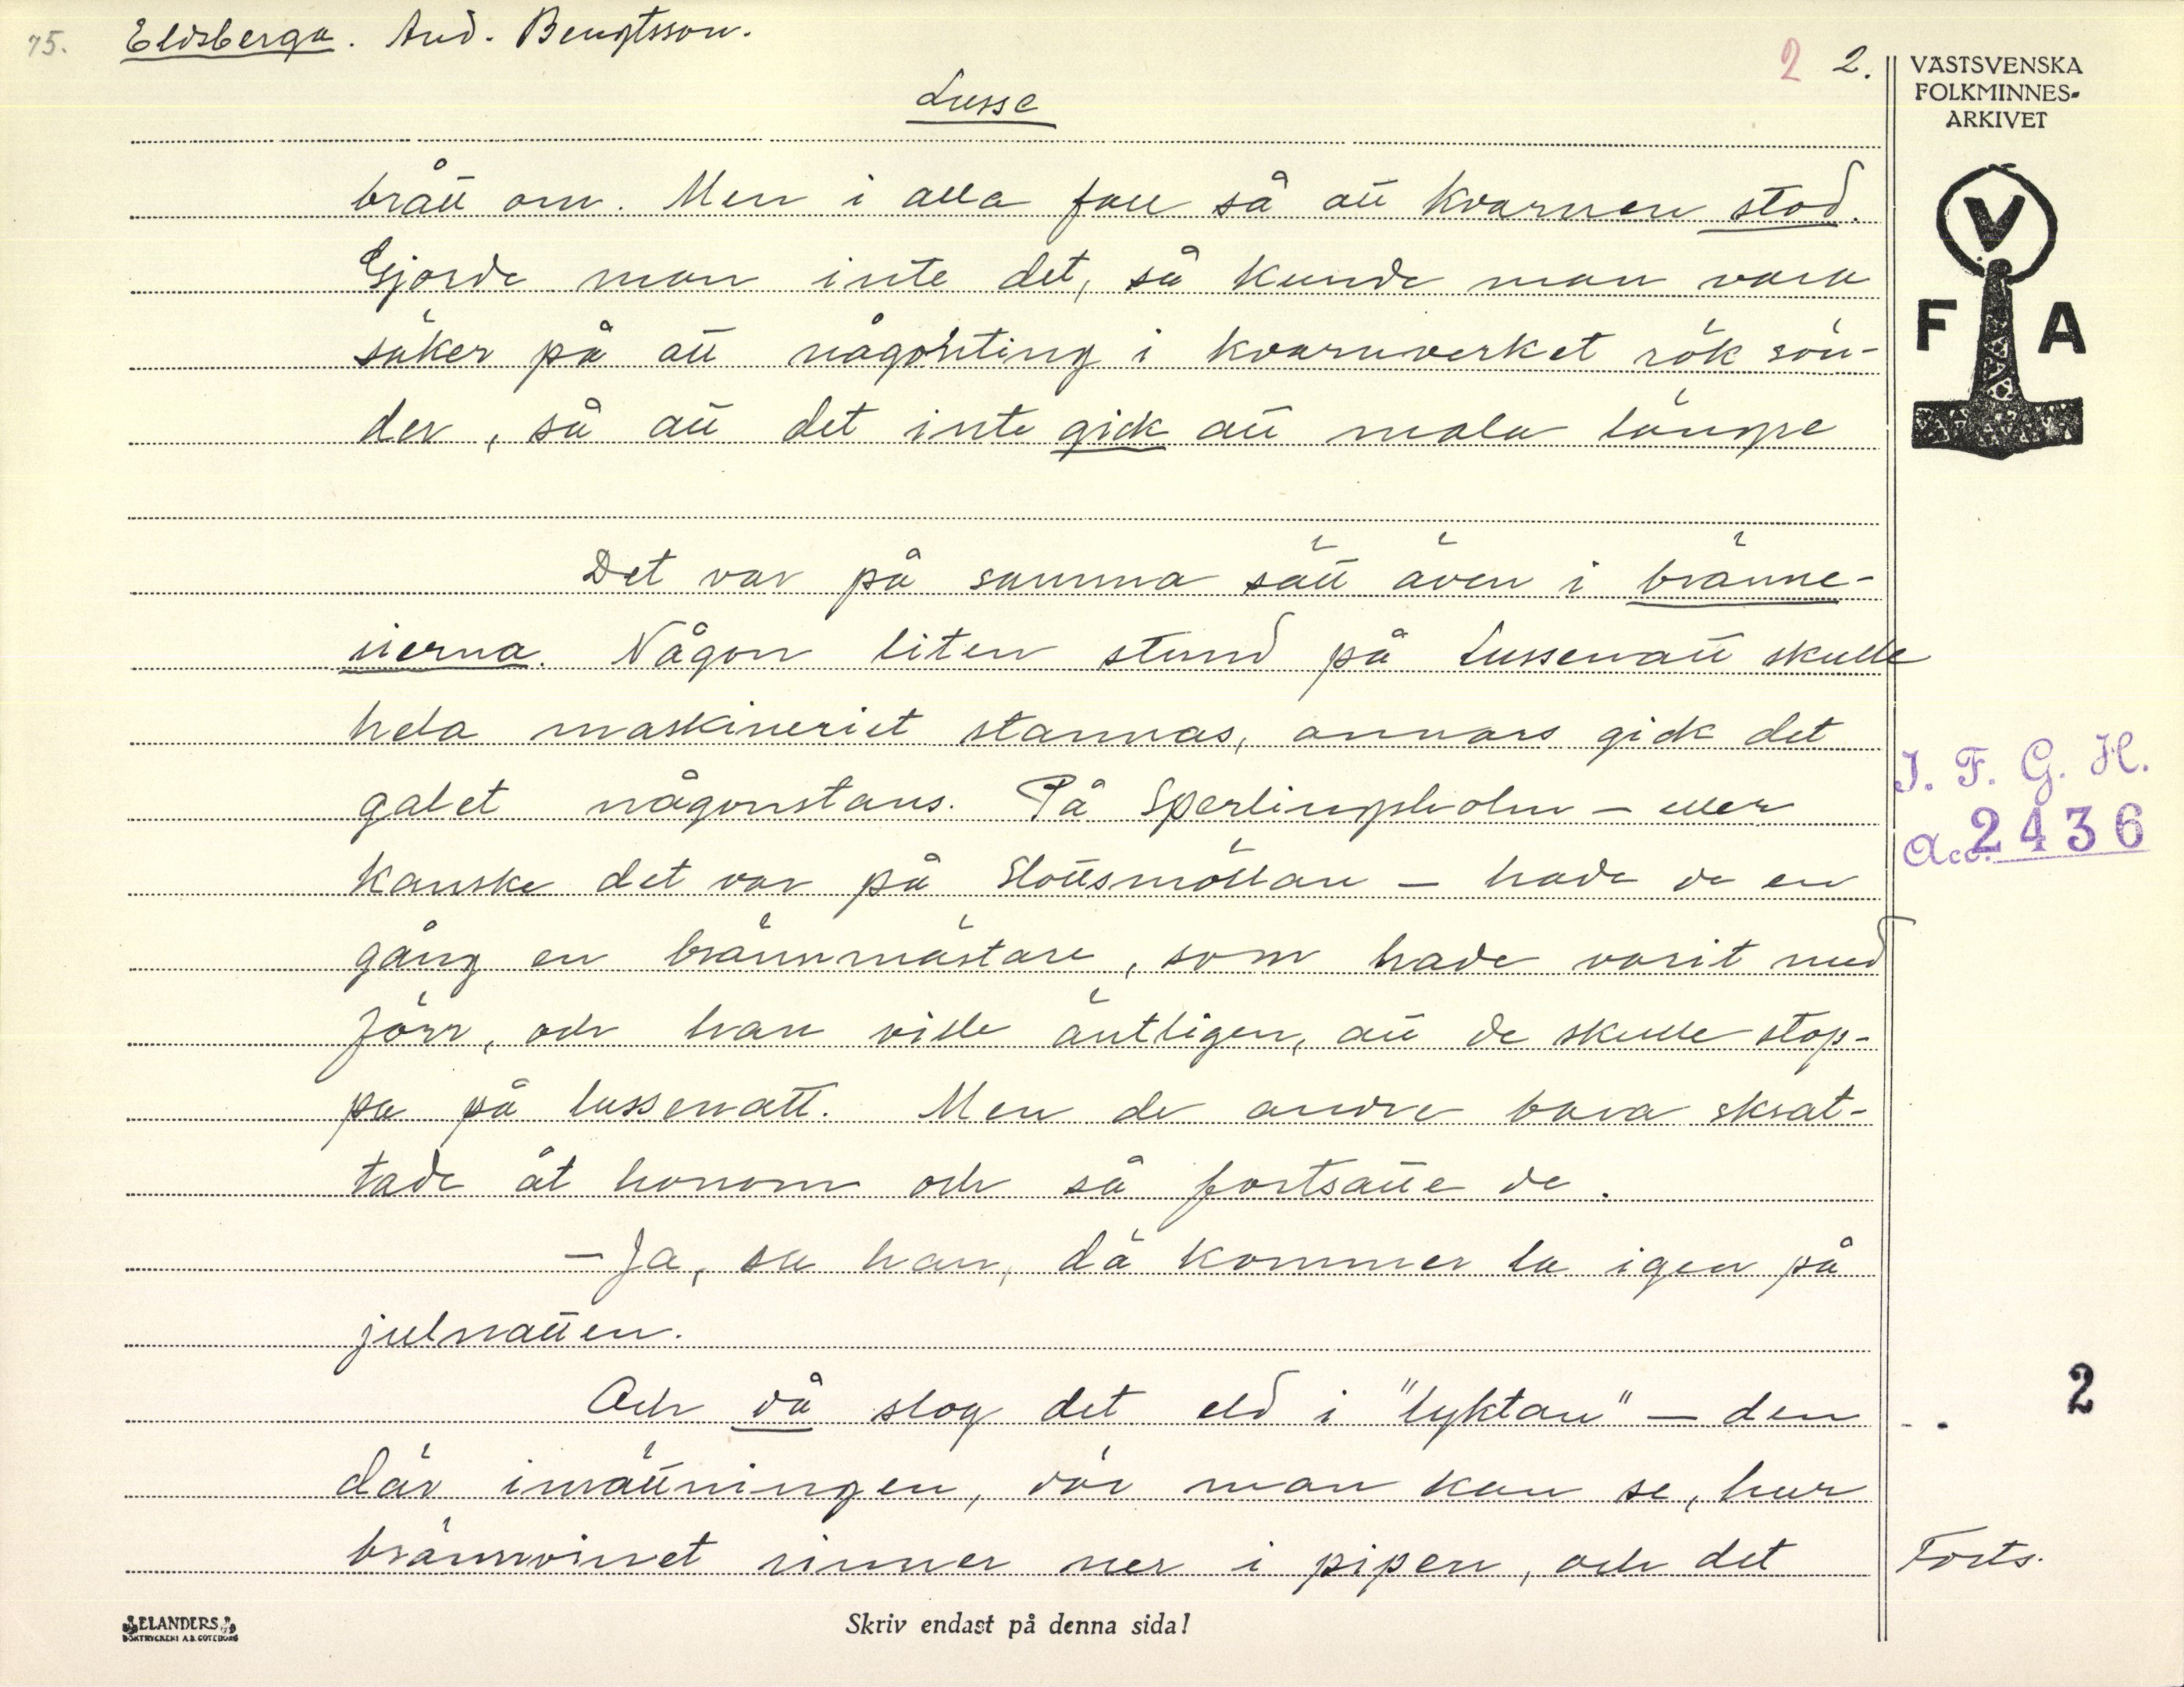 75. Eldsberga. And. Bengtsson.
2 2.
Lusse
VÄSTSVENSKA
FOLKMINNES-
ARKIVET
V
F A
brått om. Men i alla fall så att kvarnen stod.
Gjorde man inte det, så kunde man vara
säker på att någonting i kvarnverket rök sön-
der, så att det inte gick att mala längre
Det var på samma sätt även i bränne-
rierna. Någon liten stund på Lussenatt skulle
hela maskineriet stannas, annars gick det
galet någonstans. På Sperlingsholm – eller
kanske det var på Slottsmöllan – hade de en
gång en brännmästare, som hade varit med
förr, och han ville äntligen, att de skulle stop-
pa på lussenatt. Men de andra bara skrat-
tade åt honom och så fortsatte de.
– Ja, sa han, dä kommer la igen på
julnatten.
Och då slog det eld i "lyktan" – den
där inrättningen, där man kan se, hur
brännvinet rinner ner i pipen, och det
I. F. G. H.
Acc. 2436
2
Forts.
ELANDERS
BOKTRYCKERI A.B. GÖTEBORG
Skriv endast på denna sida!